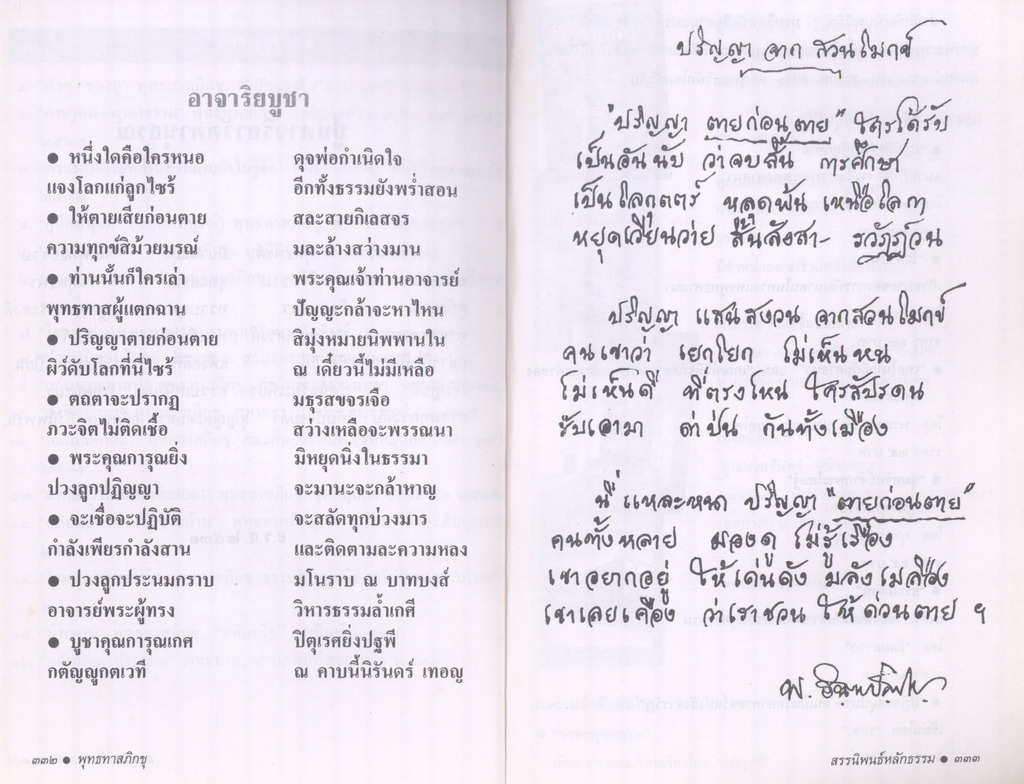 อาจาริยบูชา
● หนึ่งใดคือใครหนอ ดุจพ่อกำเนิดใจ
แจงโลกแก่ลูกไซร้ อีกทั้งธรรมยังพร่ำสอน
● ให้ตายเสียก่อนตาย สละสายกิเลสจร
ความทุกข์มิม้วยมรณ์ มละล้างสว่างมาน
● ท่านนั้นก็ใครเล่า พระคุณเจ้าท่านอาจารย์
พุทธทาสผู้แตกฉาน ปัญญะกล้าจะหาไหน
● ปริญญาตายก่อนตาย สิมุ่งหมายนิพพานใน
ผิว์ดับโลกที่นี่ไซร้ ณ เดี๋ยวนี้ไม่มีเหลือ
● ตถตาจะปรากฏ มธุรสขจรเจือ
ภวะจิตไม่ติดเชื้อ สว่างเหลือจะพรรณนา
● พระคุณการุณยิ่ง มิหยุดนิ่งในธรรมา
ปวงลูกปฏิญญา จะมานะจะกล้าหาญ
● จะเชื่อจะปฏิบัติ จะสลัดทุกบ่วงมาร
กำลังเพียรกำลังสาน และติดตามละความหลง
● ปวงลูกประนมกราบ มโนราบ ณ บาทบงส์
อาจารย์พระผู้ทรง วิหารธรรมล้ำเกศี
● บูชาคุณการุณเกศ ปิตุเรศยิ่งปฐพี
กตัญญูกตเวที ณ คาบนี้นิรันดร์ เทอญ
๓๓๒ ● พุทธทาสภิกขุ
ปริญญา จาก สวนโมกข์
ปริญญา ตายก่อนตาย" ใครได้รับ
เป็นอันนับ ว่าจบสิ้น การศึกษา
เป็นโลกุตตร์ หลุดพ้น เหนือโลกา
หยุดเวียนว่าย สิ้นสังสา- รวัฏฏ์วน
ปริญญา แสนสงวน จากสวนโมกข์
คนเขาว่า เยกโยก ไม่เห็นหน
ไม่เห็นดี ที่ตรงไหน ใครสัปดน
รับเอามา ด่าป่น กันทั้งเมือง
นี่แหละหนา ปริญญา "ตายก่อนตาย"
คนทั้งหลาย มองดู ไม่รู้เรื่อง
เขาอยากอยู่ ให้เด่นดัง มลังเมลือง
เขาเลยเคือง ว่าเราชวน ให้ด่วนตาย ฯ
สรรนิพนธ์หลักธรรม ● ๓๓๓